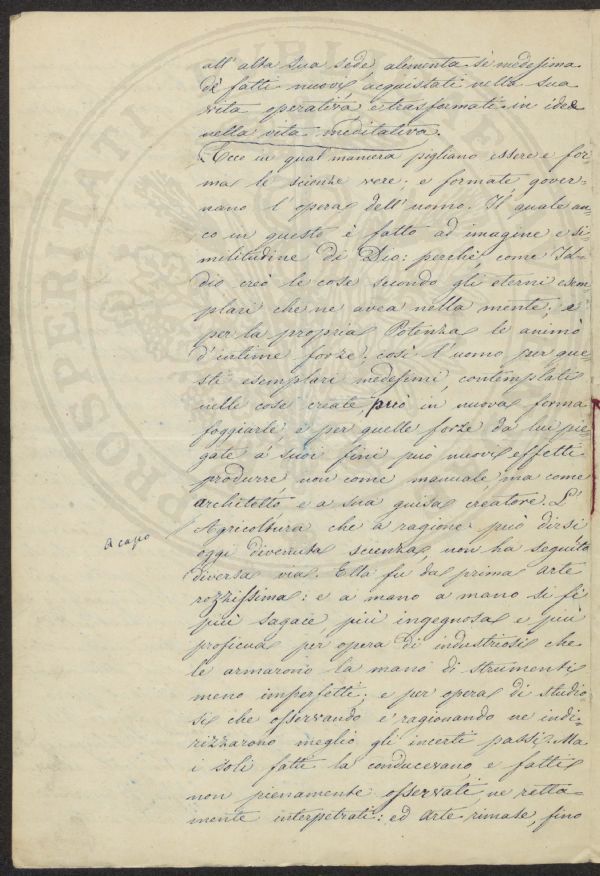 all' alta sua sede, alimenta sè medesima
di fatti nuovi, acquistati nella sua
vita operativa e trasformati in idee
nella vita meditativa.
Ecco in qual maniera pigliano essere e for=
ma le scienze vere; e formate, gover=
nano l' opera dell' uomo. Il quale an=
co in questo è fatto ad imagine e si=
militudine di Dio: perchè come Id=
dio creò le cose secondo gli eterni esem
plari che ne avea nella mente, e
per la propria Potenza le animò
d' intime forze; così l' uomo per que
sti esemplari medesimi contemplati
nelle cose create, può in nuova forma
foggiarle e per quelle forze da lui pie=
gate a' suoi fini può nuovi effetti
produrre non come manuale ma come
architetto, e a sua guisa creatore. L'
Agricoltura che a ragione può dirsi
a capo
oggi divenuta scienza, non ha seguito
diversa via. Ella fu da prima arte
rozzissima: e a mano a mano si fè
più sagace più ingegnosa e più
proficua per opera di industriosi che
le armarono la mano di strumenti
meno imperfetti; e per opera di studio=
si che osservando e ragionando ne indi=
rizzarono meglio gli incerti passi. Ma
i soli fatti la conducevano e fatti
non pienamente osservati ne retta=
mente interpetrati: ed arte rimase, fino
PROSPERITAT